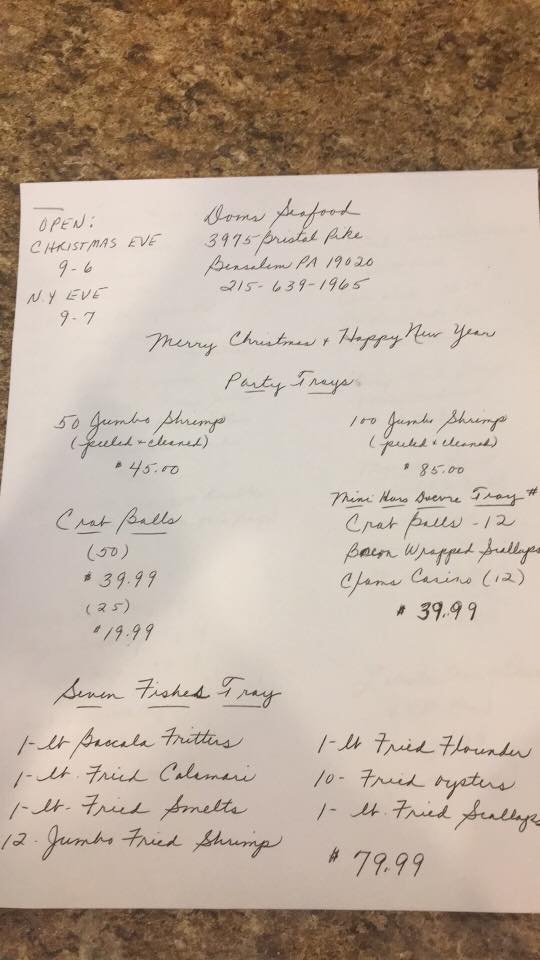 OPEN:
CHRISTMAS EVE
9-6
N.Y EVE
9-7
Doms Seafood
3975 Bristol Pike
Bensalem PA 19020
215-639-1965
Merry Christmas + Happy New Year
Party Trays
50 Jumbo Shrimp
(peeled + cleaned)
$45.00
100 Jumbo Shrimp
(peeled + cleaned)
$85.00
Crab Balls
(50)
$39.99
(25)
$19.99
Mini Hors Doevre Tray #
Crab Balls - 12
Bacon Wrapped Scallops
Clams Casino (12)
$39.99
Seven Fishes Tray
1-lb Baccala Fritters
1-lb. Fried Calamari
1-lb- Fried Smelts
12- Jumbo Fried Shrimp
1-lb Fried Flounder
10- Fried oysters
1- lb. Fried Scallops
$79.99